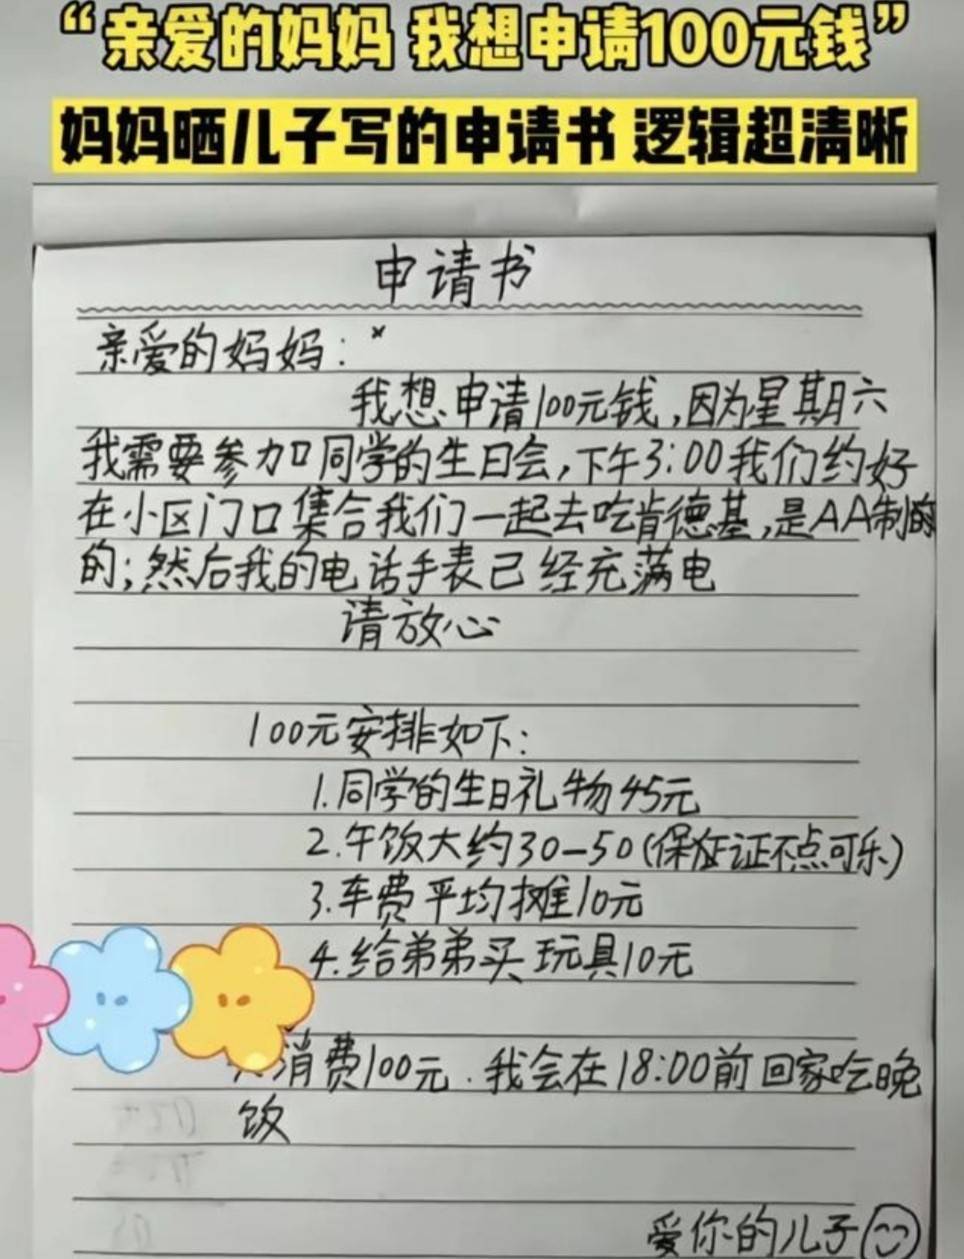 “亲爱的妈妈 我想申请100元钱”
妈妈晒儿子写的申请书 逻辑超清晰
申请书
亲爱的妈妈：
我想申请100元钱,因为星期六
我需要参加同学的生日会,下午3:00我们约好
在小区门口集合我们一起去吃肯德基,是AA制
的;然后我的电话手表已经充满电
请放心
100元安排如下:
1.同学的生日礼物45元
2.午饭大约30-50(保证不点可乐)
3.车费平均摊10元
4.给弟弟买玩具10元
消费100元.我会在18:00前回家吃晚
饭
爱你的儿子